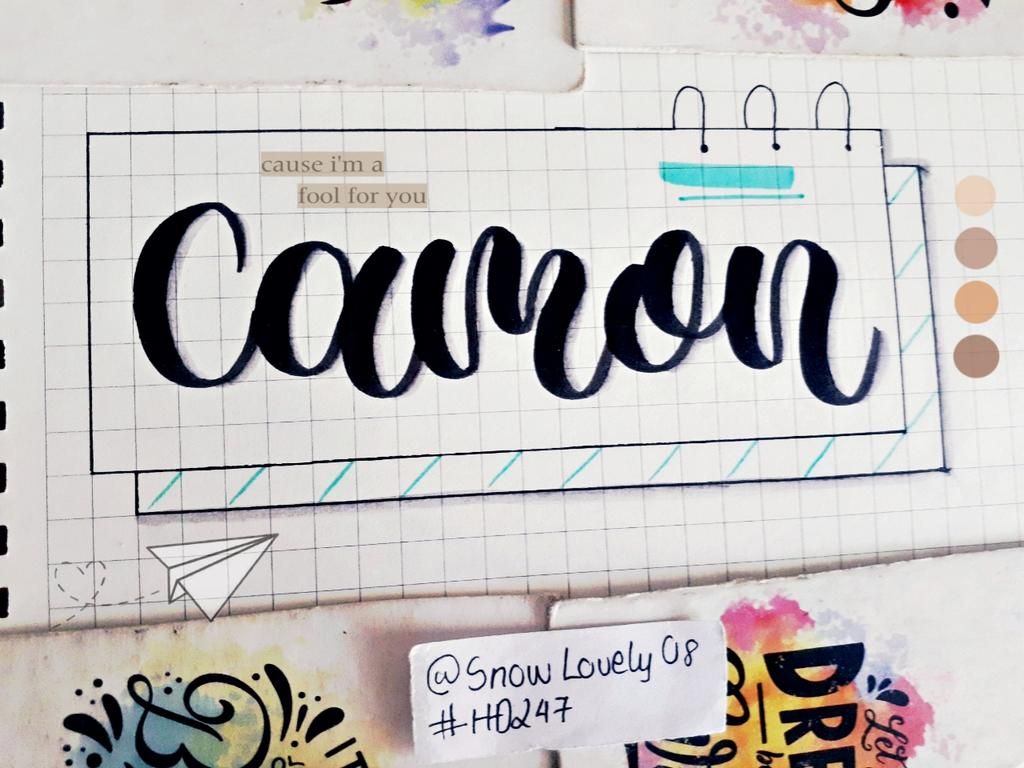 cause i'm a
fool for you
Camon
@Snow Lovely 08
#HD247
DRE
Let